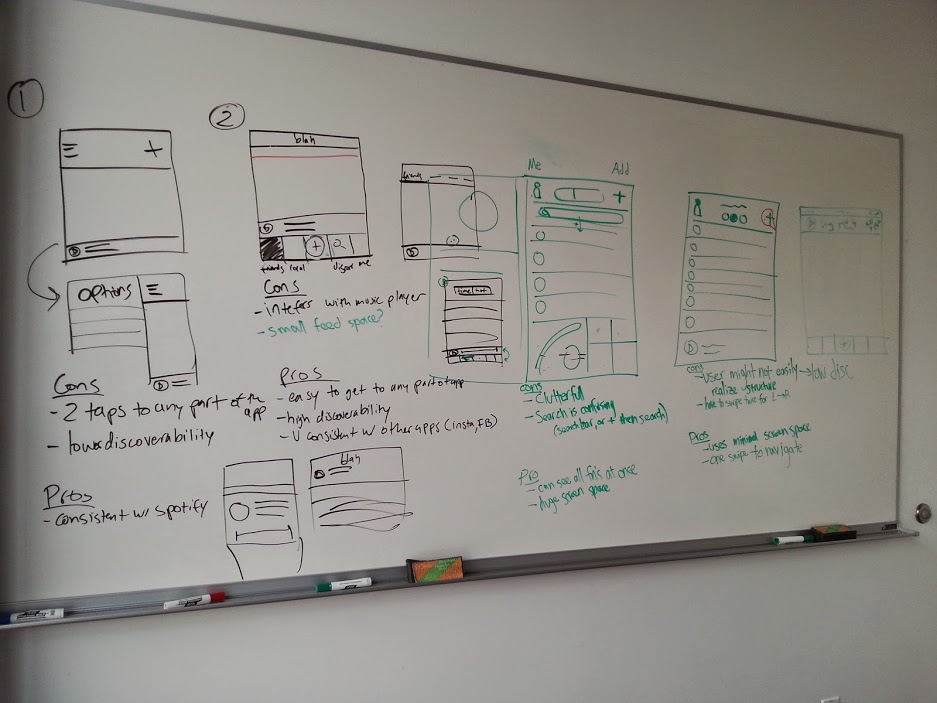 1
Options
Cons
- 2 taps to any part of the
app
- lower discoverability
Pros
- consistent w/ spotify
2
blah
friends
me
Cons
- interfers with music player
- small feed space?
Pros
- easy to get to any part of app
- high discoverability
- V consistent w/ other apps (insta, FB)
blah
friends
Me
Add
cons
- Clutterfull
- Search is confusing
(search bar, or + then search)
Pro
- can see all fri's at once
- huge screen space
cons
- user might not easily → low disc
realize structure
- have to swipe twice for L → R
Pros
- uses minimal screen space
- one swipe to navigate